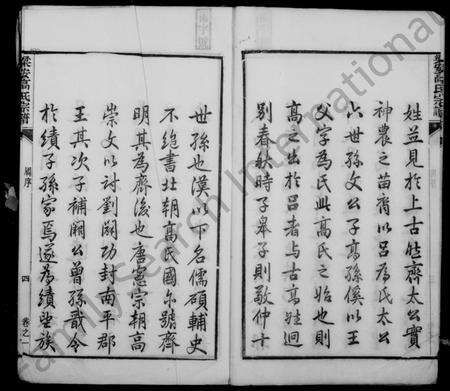 梁安高氏宗譜
姓並見於上古佐齊太公實
神農之苗裔以呂為氏太公
六世孫文公子高孫傒以王
父字為氏此高氏之始也則
高之出於呂者與古高姓迥
別春秋時子皋子則敬仲十
世孫也漢以下名儒碩輔史
不絶書北朝高氏國尒號齊
明其為齊後也唐憲宗朝高
崇文以討劉闢功封南平郡
王其次子補闕公曾孫戩令
於績子孫家焉遂為績望族
梁安高氏宗譜
舊序
四
卷之一
FamilySearch International